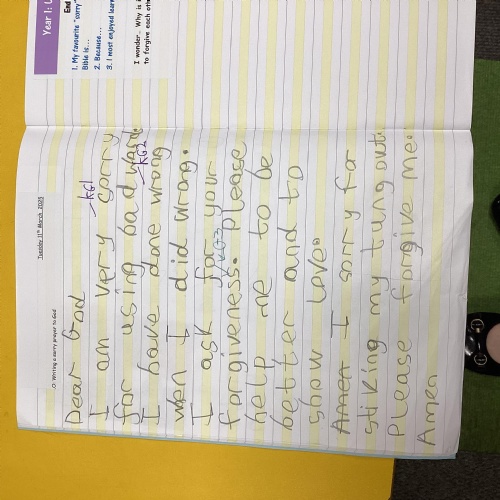 Tuesday 11th March 2025
LO: Writing a sorry prayer to God
Dear God
I am very sorry
KG1
for using bad words
KG2
I have done wrong
wen I did wrong.
I ask for your
KG3
forgiveness. please
help me to be
better and to
show love.
Amen I sorry for
stiking my tung out.
Please forgive me.
Amen
Year 1: U
End
1. My favourite "sorry"
Bible is...
2. Because...
3. I most enjoyed lear
I wonder.. Why is i
to forgive each oth